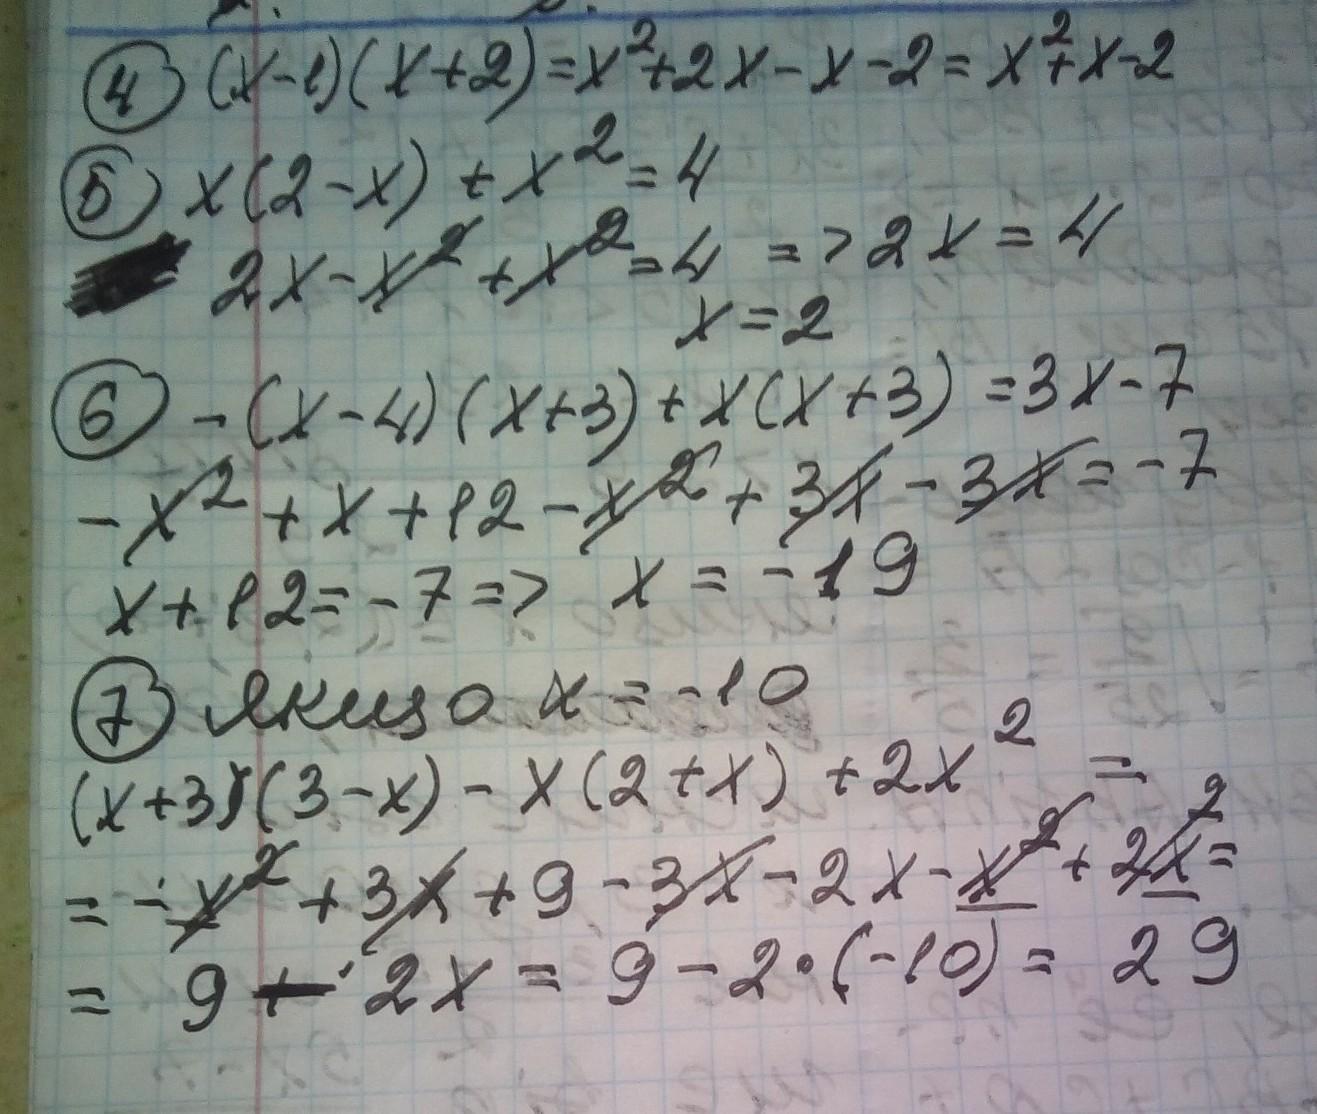 4 (x-1)(x+2)=x²+2x-x-2=x²+x-2
5 x(2-x)+x²=4
2x-x²+x²=4 => 2x=4
x=2
6 -(x-4)(x+3)+x(x+3)=3x-7
-x²+x+12-x²+3x-3x=-7
x+12=-7=> x=-19
7 Якщо x=-10
(x+3)(3-x)-x(2+x)+2x² =
=-x²+3x+9-3x-2x-x²+2x²=
= 9-2x=9-2•(-10)=29